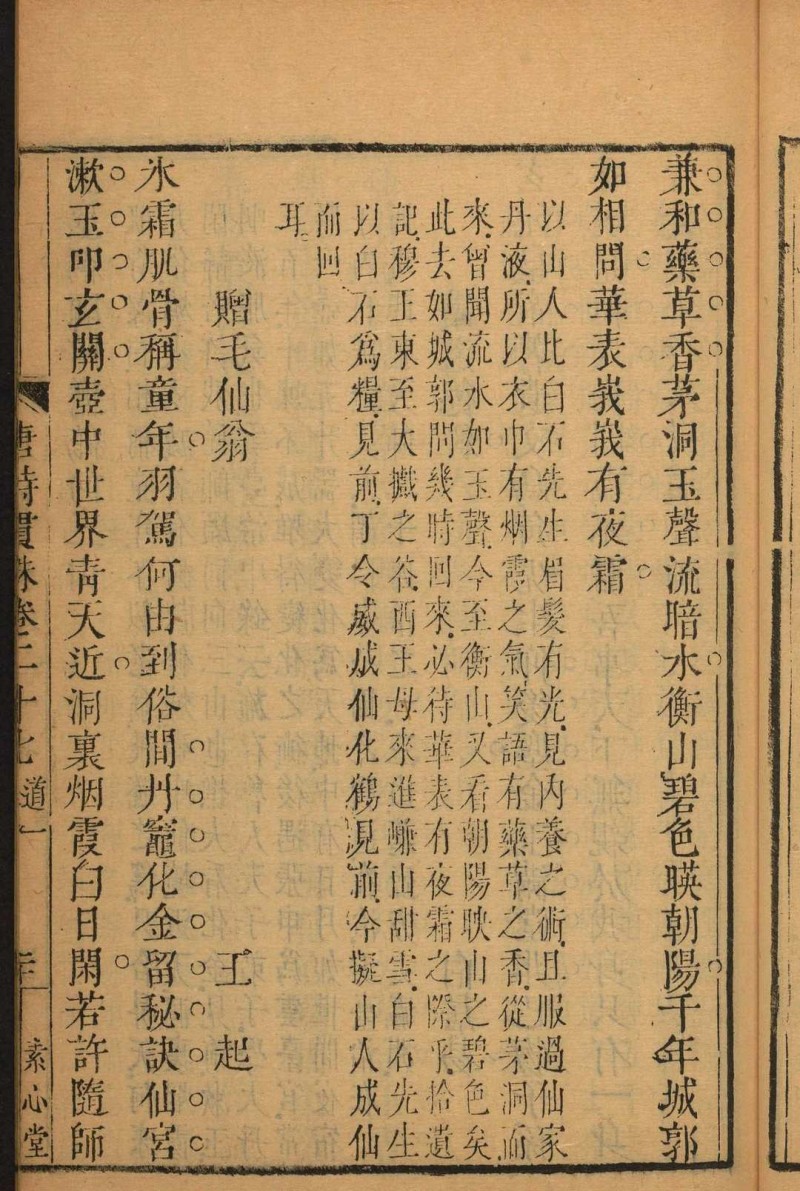 兼和藥草香茅洞玉聲流暗水衡山碧色暎朝陽千年城郭
如相問華表峩峩有夜霜
以山人比白石先生眉髮有光見內養之術且服過仙家
丹液所以衣巾有烟霞之氣笑語有藥草之香從茅洞而
來曾聞流水如玉聲今至衡山又看朝陽映山之碧色矣
此去如城郭問幾時回來必待華表有夜霜之際乎拾遺
記穆王東至大㩻之谷西王母來進嵰山甜雪白石先生
以白石爲糧見前丁令威成仙化鶴見前今擬山人成仙
而回
耳
贈毛仙翁 王起
氷霜肌骨稱童年羽駕何由到俗間丹竈化金留秘訣仙宮
漱玉叩玄關壺中世界青天近洞裏烟霞白日閑若許隨師
唐詩貫珠卷二十七 道一 素心堂